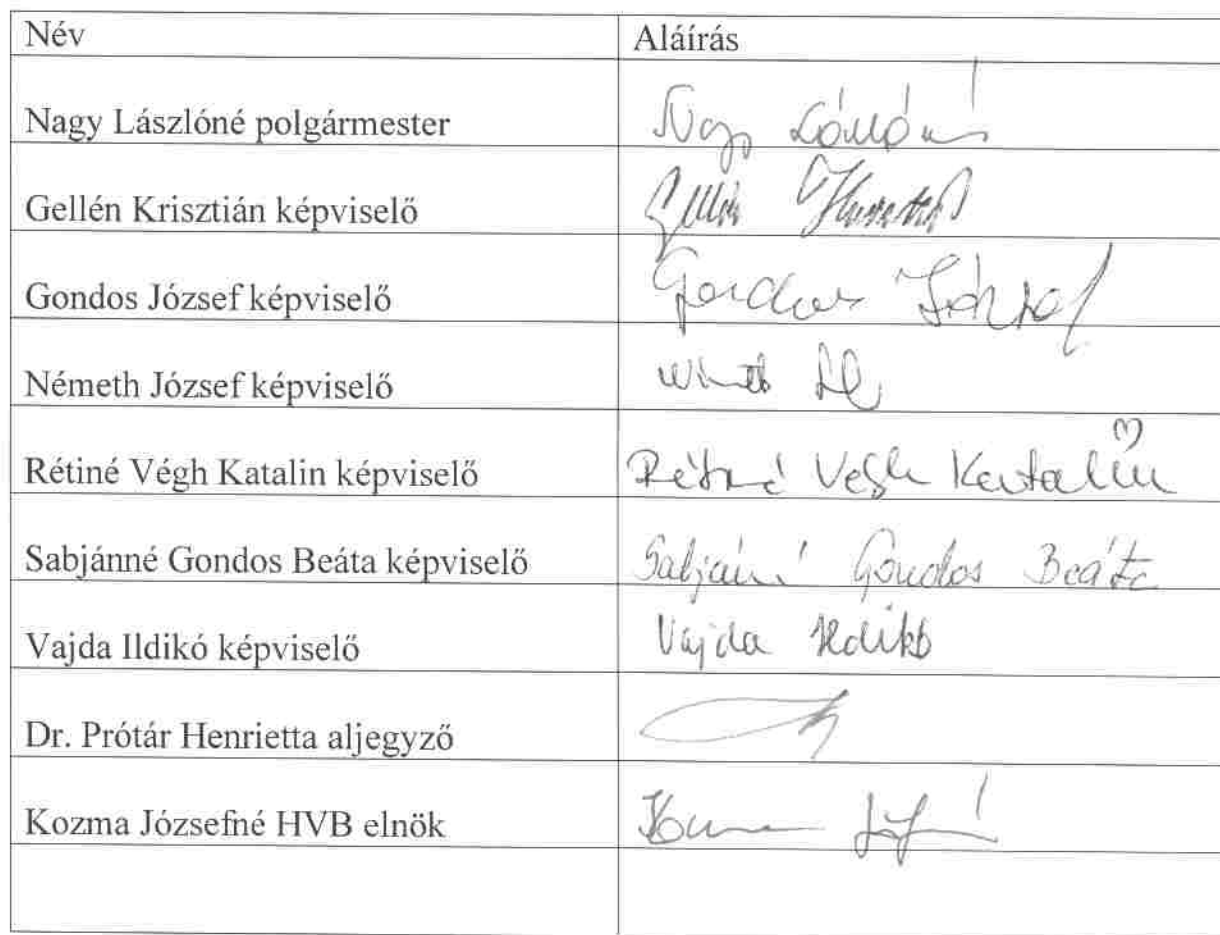 Név Aláírás
Nagy Lászlóné polgármester Nagy Lászlóné
Gellén Krisztián képviselő Gellén Krisztián
Gondos József képviselő Gondos József
Németh József képviselő
Rétiné Végh Katalin képviselő Rétiné Végh Katalin
Sabjánné Gondos Beáta képviselő Sabjánné Gondos Beáta
Vajda Ildikó képviselő Vajda Ildikó
Dr. Prótár Henrietta aljegyző
Kozma Józsefné HVB elnök